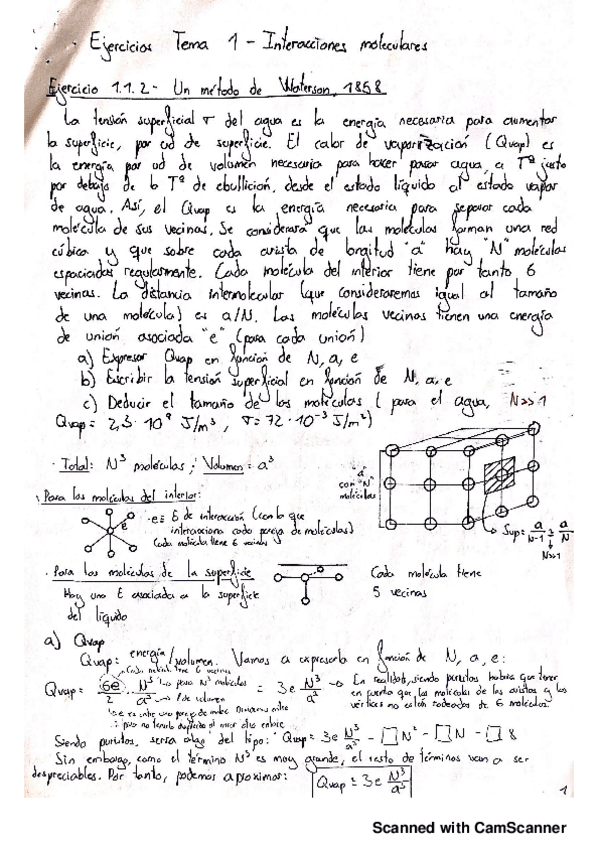 Ejercicios Tema 1 - Interacciones moleculares
Ejercicio 1.1.2- Un método de Waterson, 1858
La tensión superficial σ del agua es la energía necesaria para aumentar
la superficie, por ud de superficie. El calor de vaporización (Qvap) es
la energía por ud de volumen necesaria para hacer pasar agua, a Tª justo
por debajo de la Tª de ebullición, desde el estado líquido al estado vapor
de agua. Así, el Qvap es la energía necesaria para separar cada
molécula de sus vecinas. Se considerará que las moléculas forman una red
cúbica y que sobre cada arista de longitud "a" hay "N" moléculas
espaciadas regularmente. Cada molécula del interior tiene por tanto 6
vecinas. La distancia intermolecular (que consideraremos igual al tamaño
de una molécula) es a/N. Las moléculas vecinas tienen una energía
de unión asociada "e" (para cada unión)
a) Expresar Qvap en función de N, a, e
b) Escribir la tensión superficial en función de N, a, e
c) Deducir el tamaño de las moléculas (para el agua, N>>1
Qvap = 2,3·10⁹ J/m³, σ=72·10⁻³ J/m²)
· Total: N³ moléculas; Volumen = a³
"a"
con "N"
moléculas
· Para las moléculas del interior:
e
·e≡ E de interacción (con la que
interacciona cada pareja de moléculas)
Cada molécula tiene 6 vecinas
Sup= a/N-1 ≃ a/N
N>>1
· Para las moléculas de la superficie
Hay una E asociada a la superficie
del líquido
Cada molécula tiene
5 vecinas
a) Qvap
Qvap: energía/volumen. Vamos a expresarla en función de N, a, e:
Cada molécula tiene 6 vecinas
Qvap: 6e/2 N³/a³ = 3e N³/a³
para N³ moléculas
→ En realidad, siendo puristas habría que tener
en cuenta que las moléculas de las aristas y los
vértices no están rodeadas de 6 moléculas
Siendo puristas, sería algo del tipo: Qvap = 3e N³/a³ - □N² - □N - □8
Sin embargo, como el término N³ es muy grande, el resto de términos van a ser
despreciables. Por tanto, podemos aproximar: Qvap ≃ 3e N³/a³
1
Scanned with CamScanner